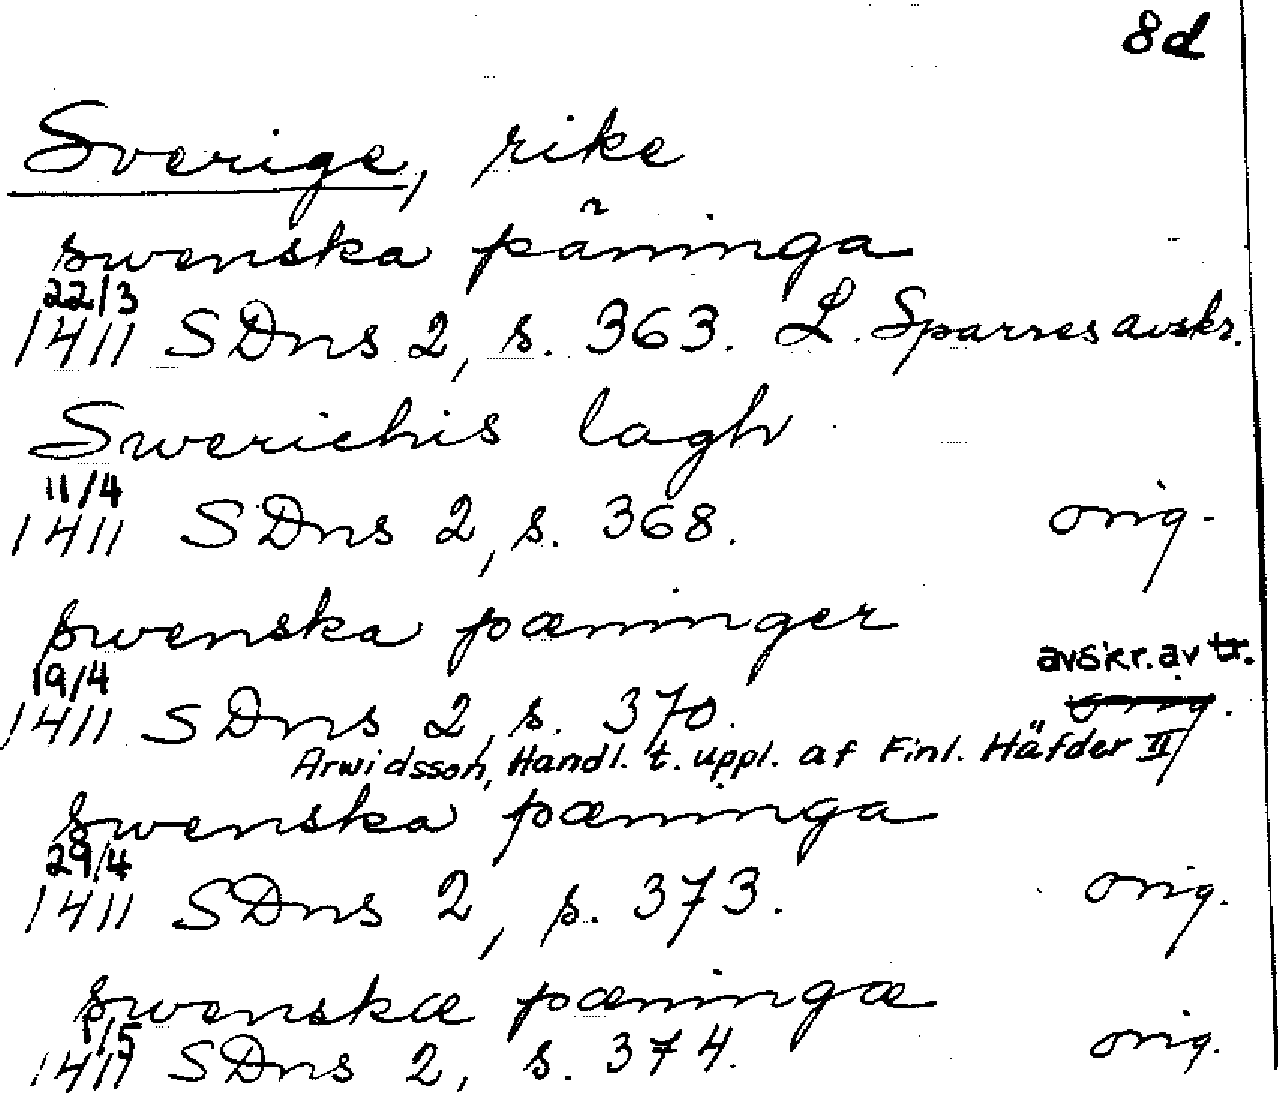 8d
Sverige, rike
swenska päninga
22/3
1411 SDns 2, s. 363. L. Sparres avskr.
Swerichis lagh
11/4
1411 SDns 2, s. 368. orig.
swenska pæninger
avskr. av tr.
19/4
1411 SDns 2, s. 370. orig.
Arwidsson, Handl. t. uppl. af Finl. Häfder II
swenska pæninga
29/4
1411 SDns 2, s. 373. orig.
swenskæ pæningæ
1/5
1411 SDns 2, s. 374. orig.